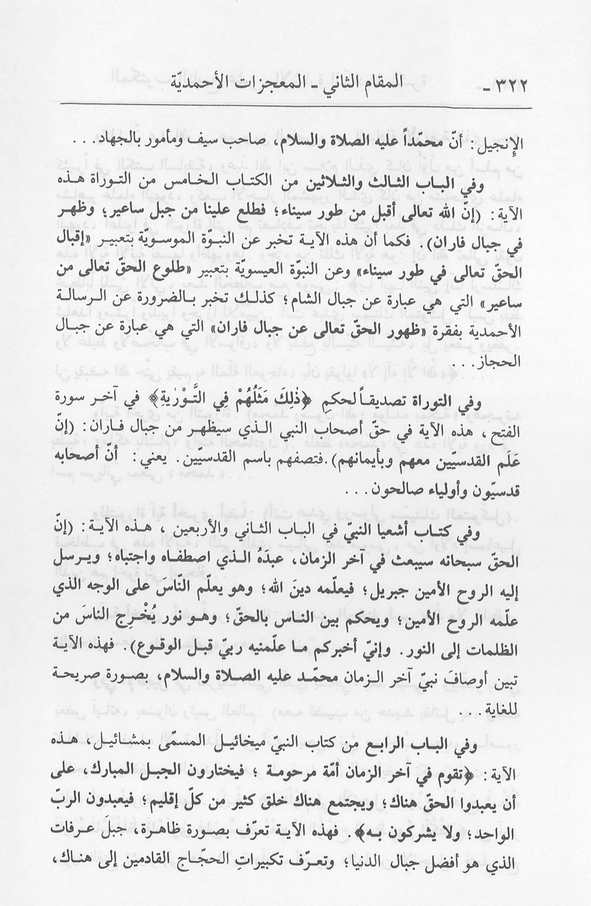 ٣٢٢ - المقام الثاني - المعجزات الأحمديّة
الإنجيل: أنّ محمّداً عليه الصلاة والسلام، صاحب سيف ومأمور بالجهاد...
وفي الباب الثالث والثلاثين من الكتاب الخامس من التوراة هذه
الآية: (إنّ الله تعالى أقبل من طور سيناء؛ فطلع علينا من جبل ساعير؛ وظهر
في جبال فاران). فكما أن هذه الآية تخبر عن النبوّة الموسويّة بتعبير «إقبال
الحقّ تعالى في طور سيناء» وعن النبوّة العيسويّة بتعبير «طلوع الحقّ تعالى من
ساعير» التي هي عبارة عن جبال الشام؛ كذلك تخبر بالضرورة عن الرسالة
الأحمدية بفقرة «ظهور الحقّ تعالى عن جبال فاران» التي هي عبارة عن جبال
الحجاز...
وفي التوراة تصديقاً لحكم ﴿ذٰلِكَ مَثَلُهُمْ فِي التَّوْرٰيةِ﴾ في آخر سورة
الفتح، هذه الآية في حقّ أصحاب النبي الذي سيظهر من جبال فاران: (إنّ
عَلَم القدسيّين معهم وبأيمانهم). فتصفهم باسم القدسيّين. يعني: أنّ أصحابه
قدسيّون وأولياء صالحون...
وفي كتاب أشعيا النبيّ في الباب الثاني والأربعين، هذه الآية: (إنّ
الحقّ سبحانه سيبعث في آخر الزمان، عبدَهُ الذي اصطفاه واجتباه؛ ويرسل
إليه الروح الأمين جبريل؛ فيعلّمه دينَ الله؛ وهو يعلّم النّاسَ على الوجه الذي
علّمه الروح الأمين؛ ويحكم بين الناس بالحقّ؛ وهو نور يُخْرِج الناسَ من
الظلمات إلى النور. وإنيّ أخبركم ما علّمنيه ربيّ قبل الوقوع). فهذه الآية
تبين أوصافَ نبيّ آخر الزمان محمّد عليه الصلاة والسلام، بصورة صريحة
للغاية...
وفي الباب الرابع من كتاب النبيّ ميخائيل المسمّى بمشائيل، هذه
الآية: ﴿تقوم في آخر الزمان أمّة مرحومة؛ فيختارون الجبل المبارك، على
أن يعبدوا الحقّ هناك؛ ويجتمع هناك خلق كثير من كلّ إقليم؛ فيعبدون الربّ
الواحد؛ ولا يشركون به﴾. فهذه الآية تعرّف بصورة ظاهرة، جبلَ عرفات
الذي هو أفضل جبال الدنيا؛ وتعرّف تكبيراتِ الحجّاج القادمين إلى هناك،